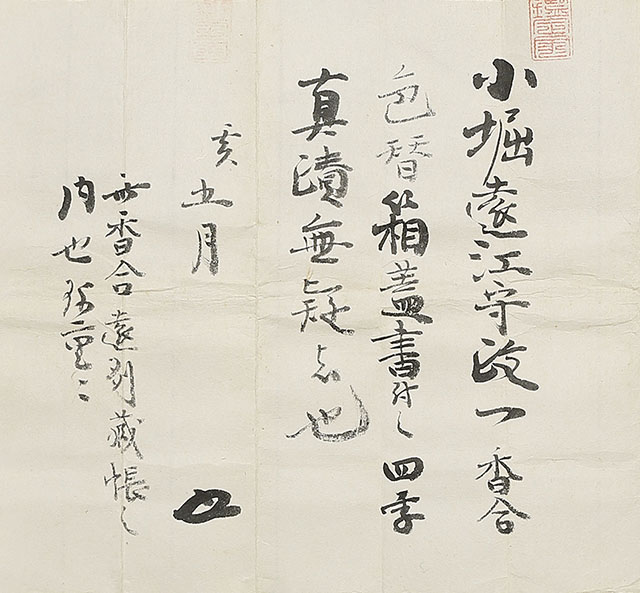 小堀遠江守政一香合
色替箱蓋書付之四字
真蹟無疑者也
亥五月
此香合遠州蔵帳之
内也珍重々